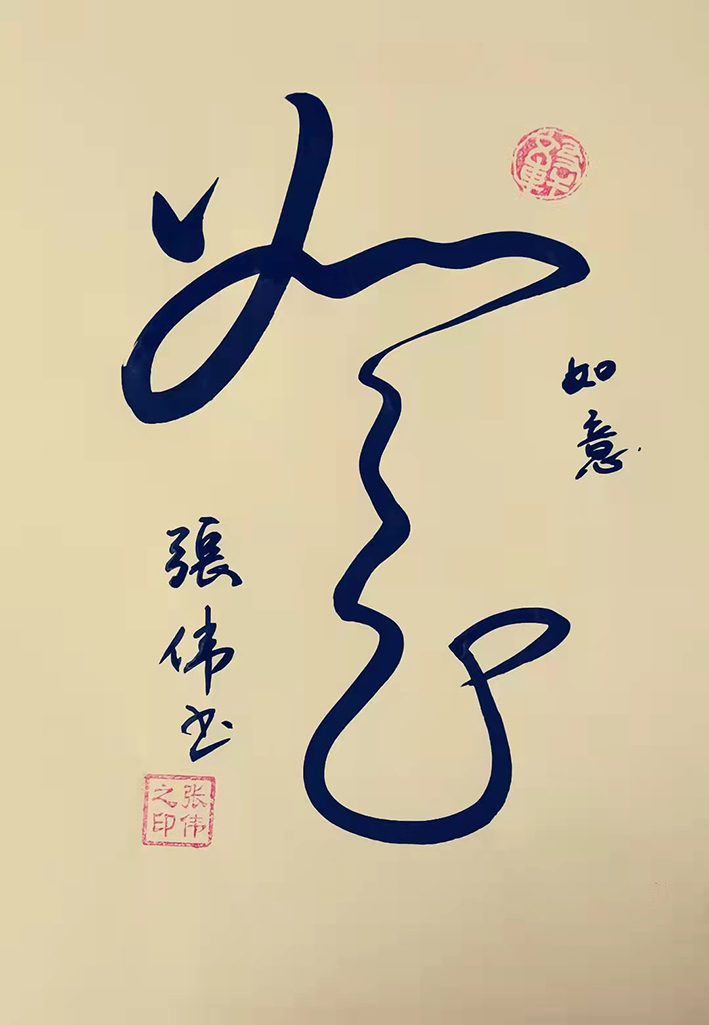 如意
如意
張伟书
张伟之印